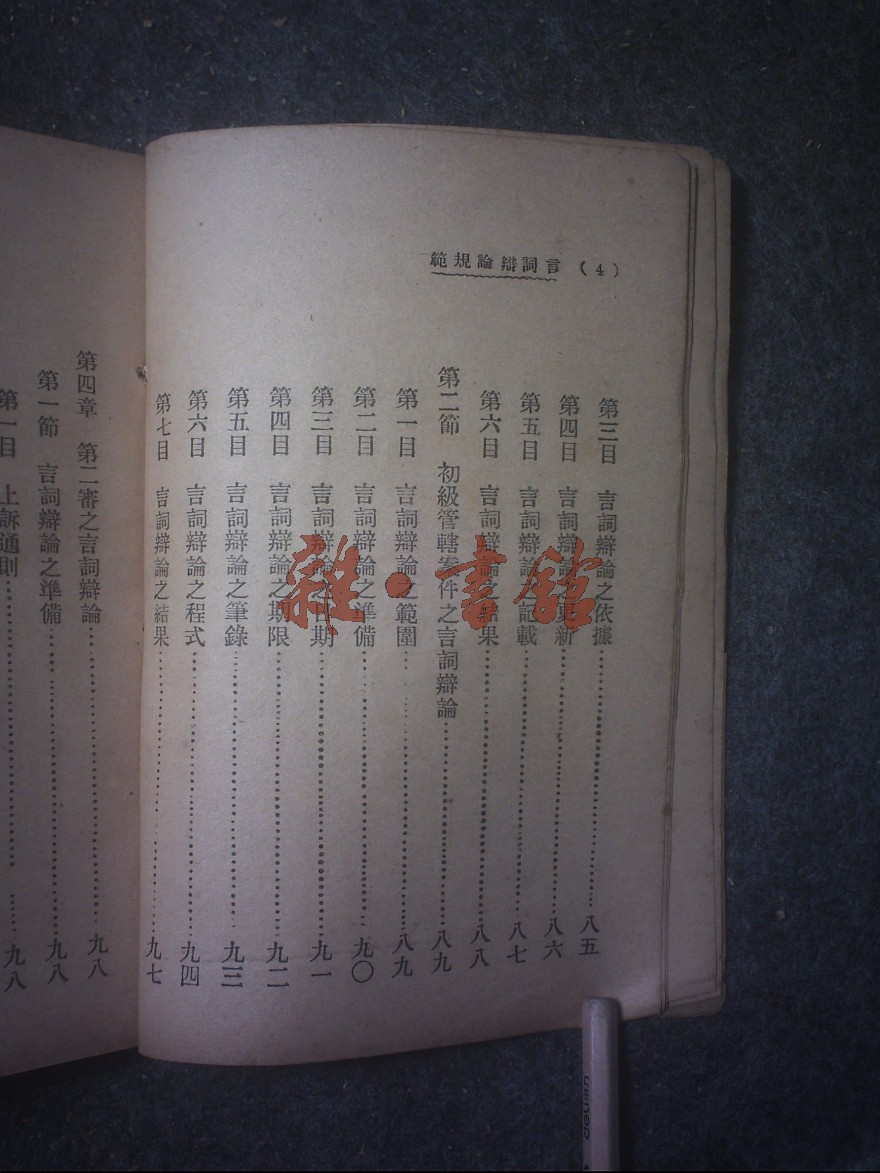 （4） 言詞辯論規範
第三目　言詞辯論之依據……八五
第四目　言詞辯論之更新……八六
第五目　言詞辯論之記載……八七
第六目　言詞辯論之結果……八八
第二節　初級管轄案件之言詞辯論……八九
第一目　言詞辯論之範圍……八九
第二目　言詞辯論之準備……九〇
第三目　言詞辯論之日期……九一
第四目　言詞辯論之期限……九二
第五目　言詞辯論之筆錄……九三
第六目　言詞辯論之程式……九四
第七目　言詞辯論之結果……九七
第四章　第二審之言詞辯論……九八
第一節　言詞辯論之準備……九八
第一目　上訴通則……九八
雜·書館
deli